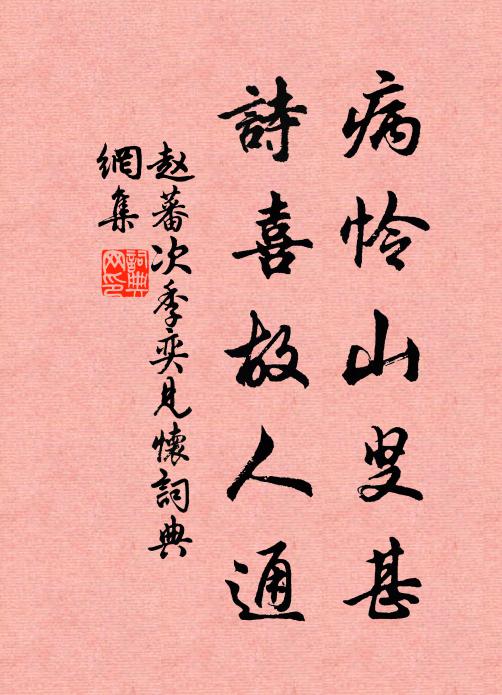 病怜山叟甚
詩喜故人通
赵蕃次季奕見懷詞典
網集
詞典
网印